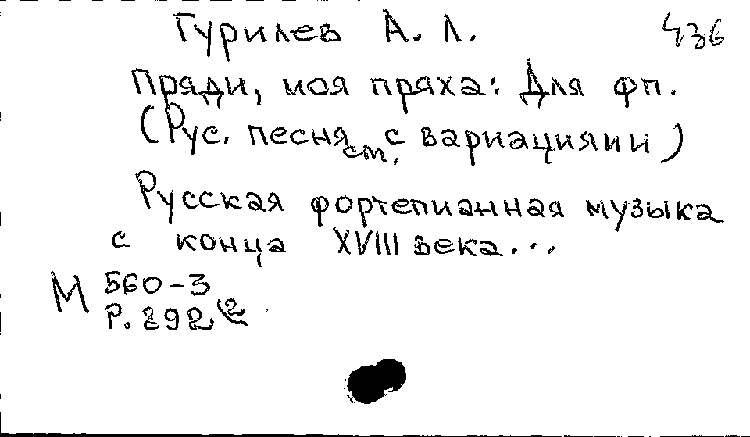 Гурилев А. Л. 436
Пряди, моя пряха: Для фп.
(Рус. песня с вариациями)
ст.
Русская фортепианная музыка
с конца XVIII века...
М 560-3
Р. 292